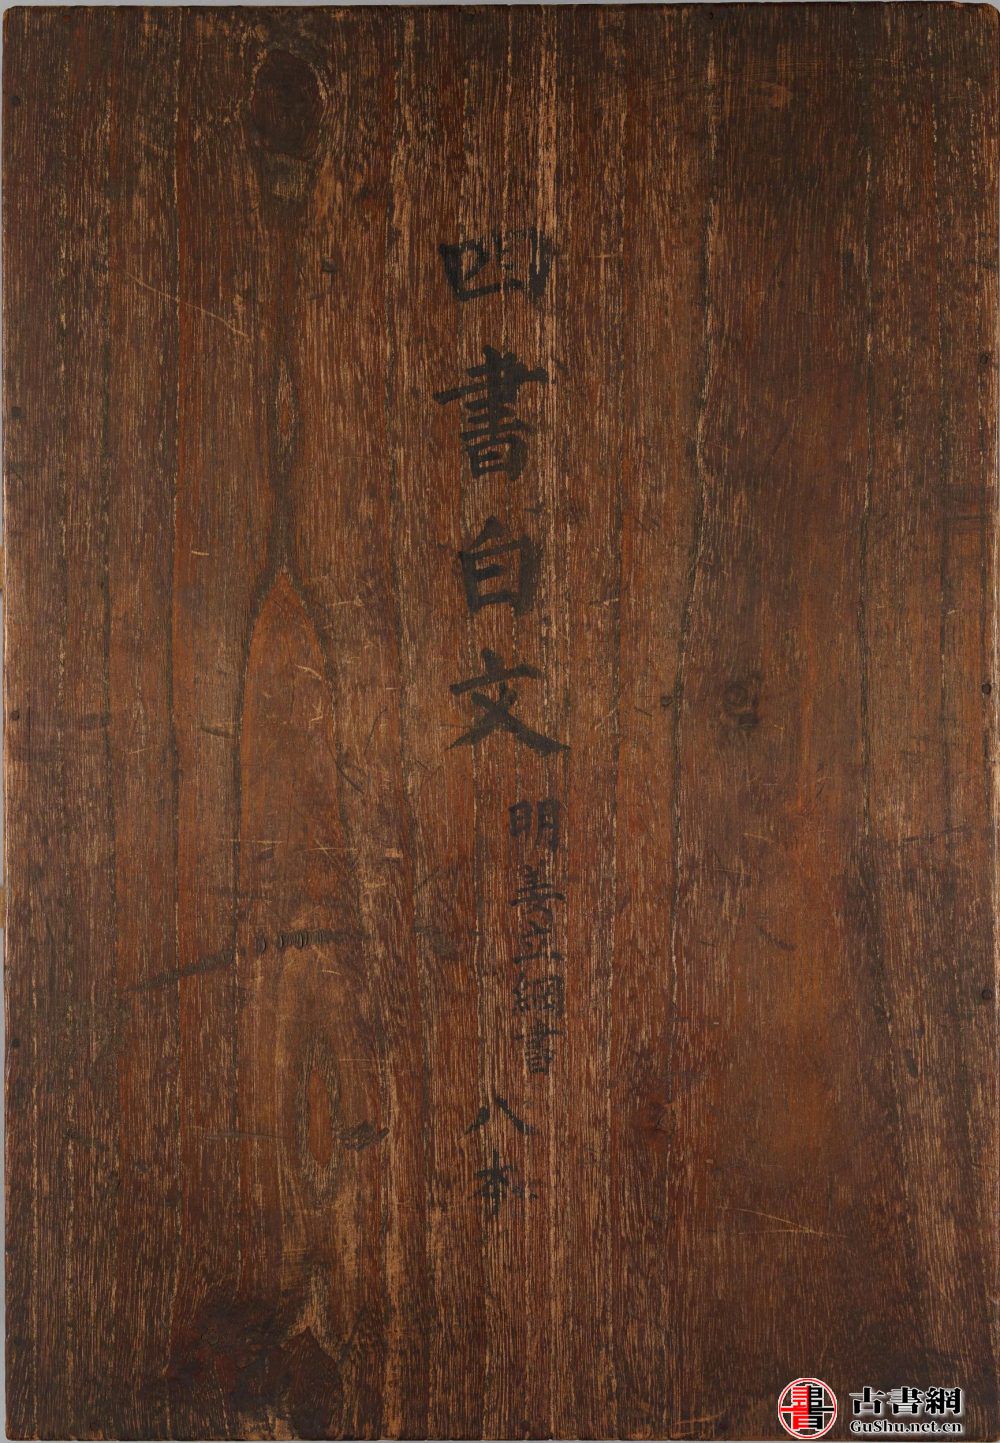 四書白文
明姜立綱書
八本
古書網
GuShu.net.cn